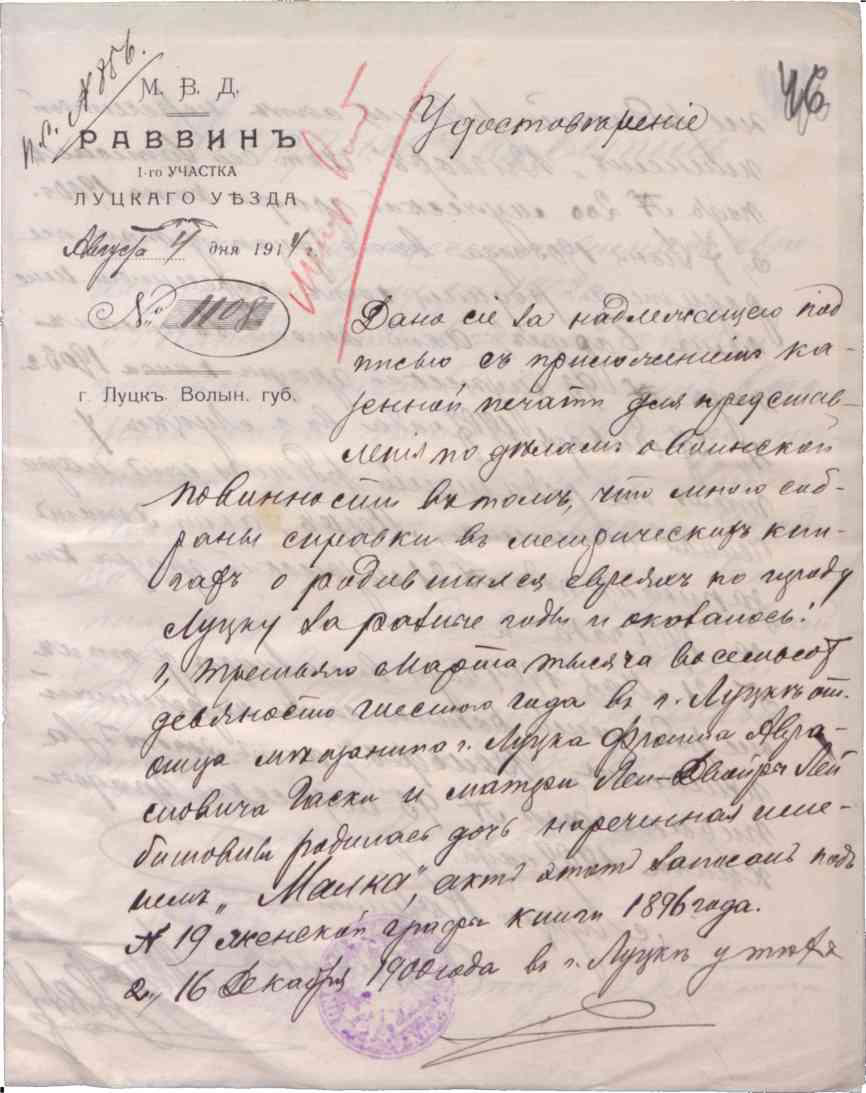 п.с. № 856.
46
М. В. Д.
РАВВИНЪ
1-го УЧАСТКА
ЛУЦКАГО УѢЗДА
Августа 4 дня 1914 г.
№ 1108
г. Луцкъ. Волын. губ.
Удостовѣреніе
Дано сіе за надлежащею под
писью съ приложеніемъ ка-
зенной печати для представ-
ленія по дѣламъ о воинской
повинности въ томъ, что мною соб-
раны справки въ метрическихъ кни-
гахъ о родившихся евреяхъ по городу
Луцку за разные годы и оказалось:
1, третьяго Марта тысяча восемьсот
девяносто шестого года въ г. Луцкѣ от.
отца мѣщанина г. Луцка Фроима Авру-
мовича и матери Леи-Двойры Лей
бишовны родилась дочь нареченная име-
немъ „Малка", актъ этотъ записанъ подъ
№ 19 женской графы книги 1896 года.
2, 16 Декабря 1900 года въ г. Луцкѣ у тѣхъ